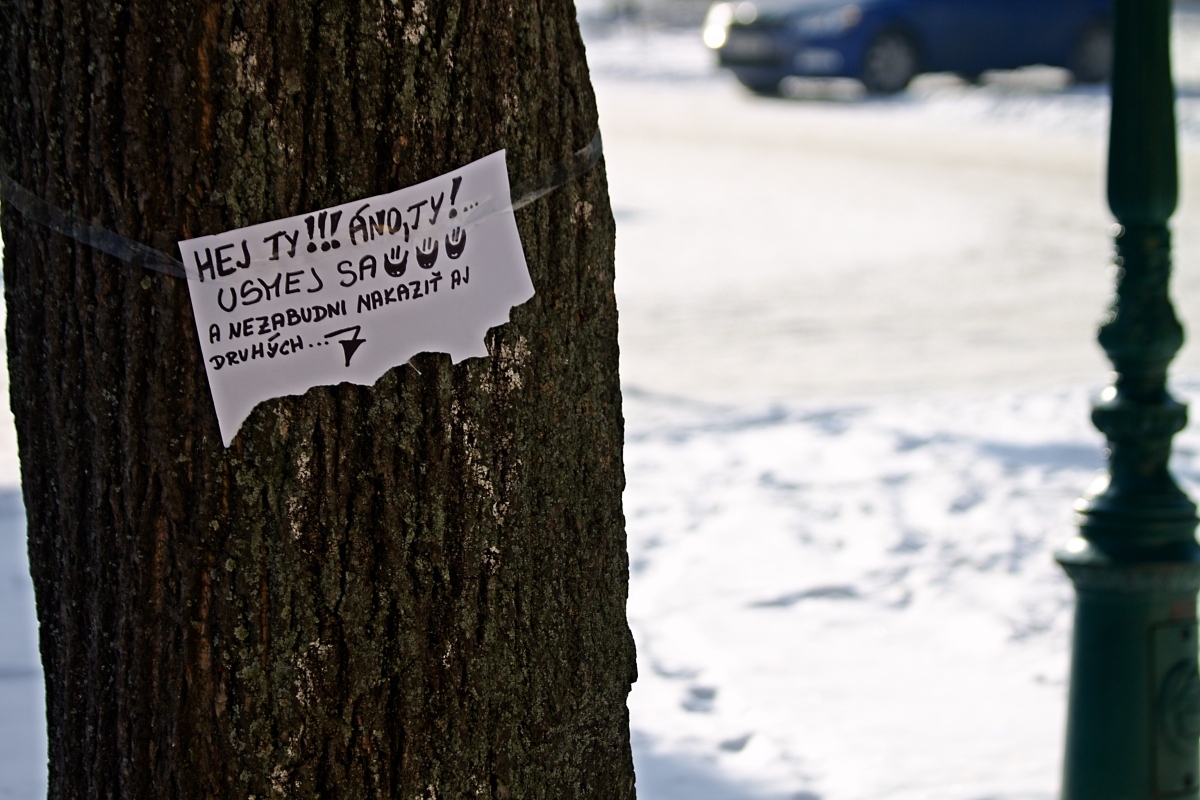 HEJ TY!!! ÁNO, TY!...
USMEJ SA
A NEZABUDNI NAKAZIŤ AJ
DRUHÝCH...